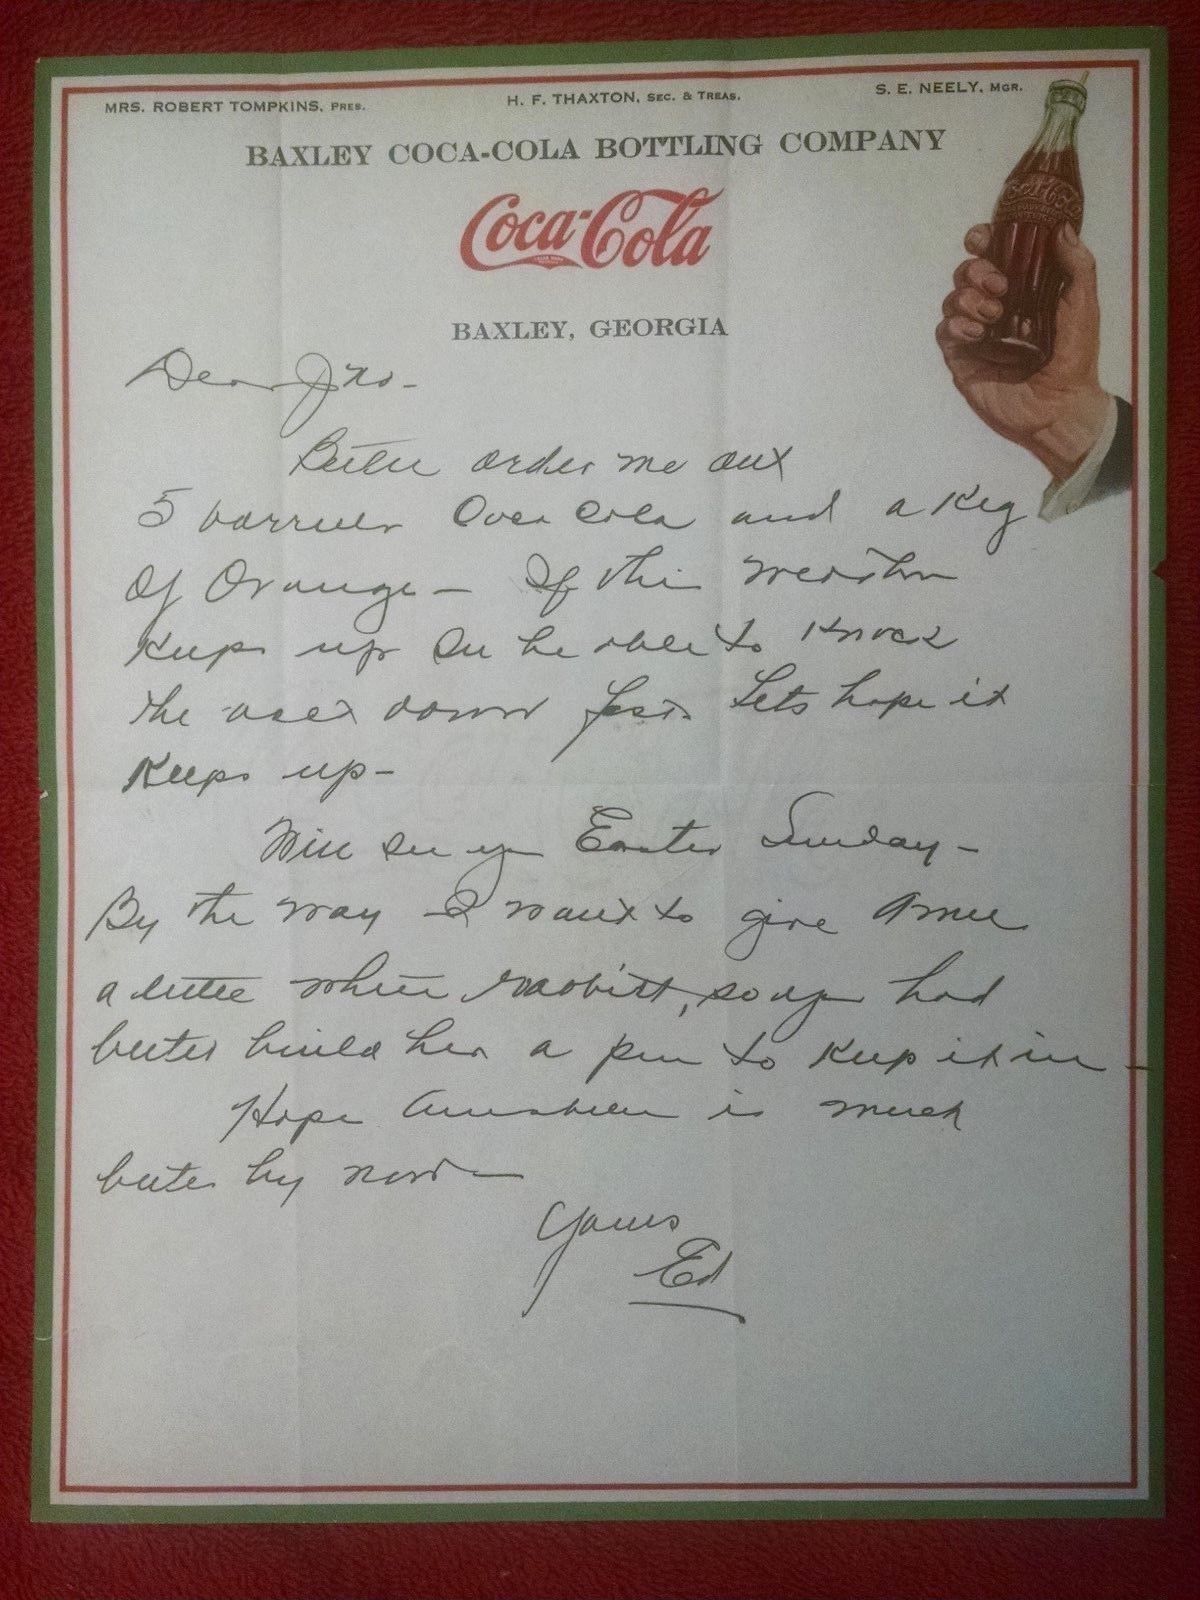 MRS. ROBERT TOMPKINS, PRES.
H. F. THAXTON, SEC. & TREAS.
S. E. NEELY, MGR.
BAXLEY COCA-COLA BOTTLING COMPANY
Coca-Cola
BAXLEY, GEORGIA
Coca-Cola
Dear Jno-
Better order me out
5 barrels Coca Cola and a Keg
of Orange - If this weather
Keeps up Ill be able to Knock
the debt down fast. Lets hope it
Keeps up -
Will see you Easter Sunday -
By the way I want to give
a little white rabbitt, so you had
better build her a pen to Keep it in -
Hope is much
better by now -
Yours
Ed